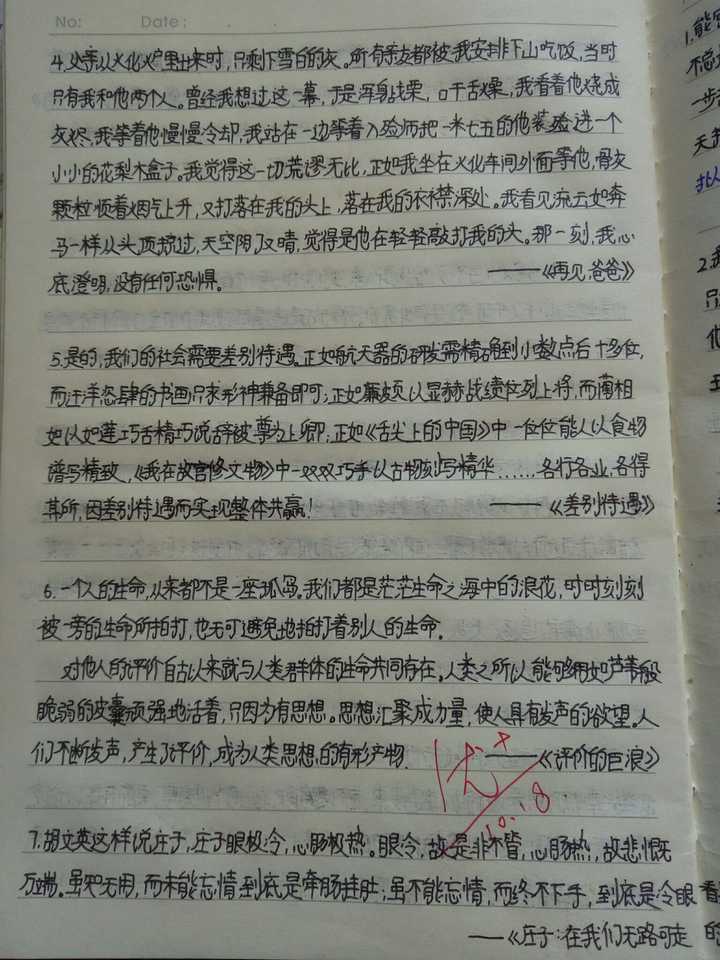 No: Date: . .
4.父亲从火化炉里出来时,只剩下雪白的灰。所有亲友都被我安排下山吃饭,当时
只有我和他两个人。曾经我想过这一幕,于是浑身战栗,口干舌燥,我看着他烧成
灰烬,我等着他慢慢冷却,我站在一边等着入殓师把一米七五的他装殓进一个
小小的花梨木盒子。我觉得这一切荒谬无比,正如我坐在火化车间外面等他,骨灰
颗粒顺着烟气上升,又打落在我的头上,落在我的衣襟深处。我看见流云如奔
马一样从头顶掠过,天空阴了又晴,觉得是他在轻轻敲打我的头。那一刻,我心
底澄明,没有任何恐惧。 ——《再见,爸爸》
5.是的,我们的社会需要差别待遇。正如航天器的研发需精确到小数点后十多位,
而汪洋恣肆的书画只求形神兼备即可;正如廉颇以显赫战绩位列上将,而蔺相
如以如莲巧舌精巧说辞被尊为上卿;正如《舌尖上的中国》中一位位能人以食物
谱写精致,《我在故宫修文物》中一双双巧手以古物刻写精华……各行各业,各得
其所,因差别待遇而实现整体共赢! ——《差别待遇》
6.一个人的生命,从来都不是一座孤岛。我们都是茫茫生命之海中的浪花,时时刻刻
被一旁的生命所拍打,也无可避免地拍打着别人的生命。
对他人的评价自古以来就与人类群体的生命共同存在。人类之所以能够拥如芦苇般
脆弱的皮囊顽强地活着,只因为有思想。思想汇聚成力量,使人具有发声的欲望。人
们不断发声,产生了评价,成为人类思想的有形产物. ——《评价的巨浪》
优+
10.18
7.胡文英这样说庄子,庄子眼极冷,心肠极热。眼冷,故是非不管,心肠热,故悲慨
万端。虽知无用,而未能忘情到底是牵肠挂肚;虽不能忘情,而终不下手,到底是冷眼看
——《庄子:在我们无路可走的
1.能
不
一步
天
2.我
只
他